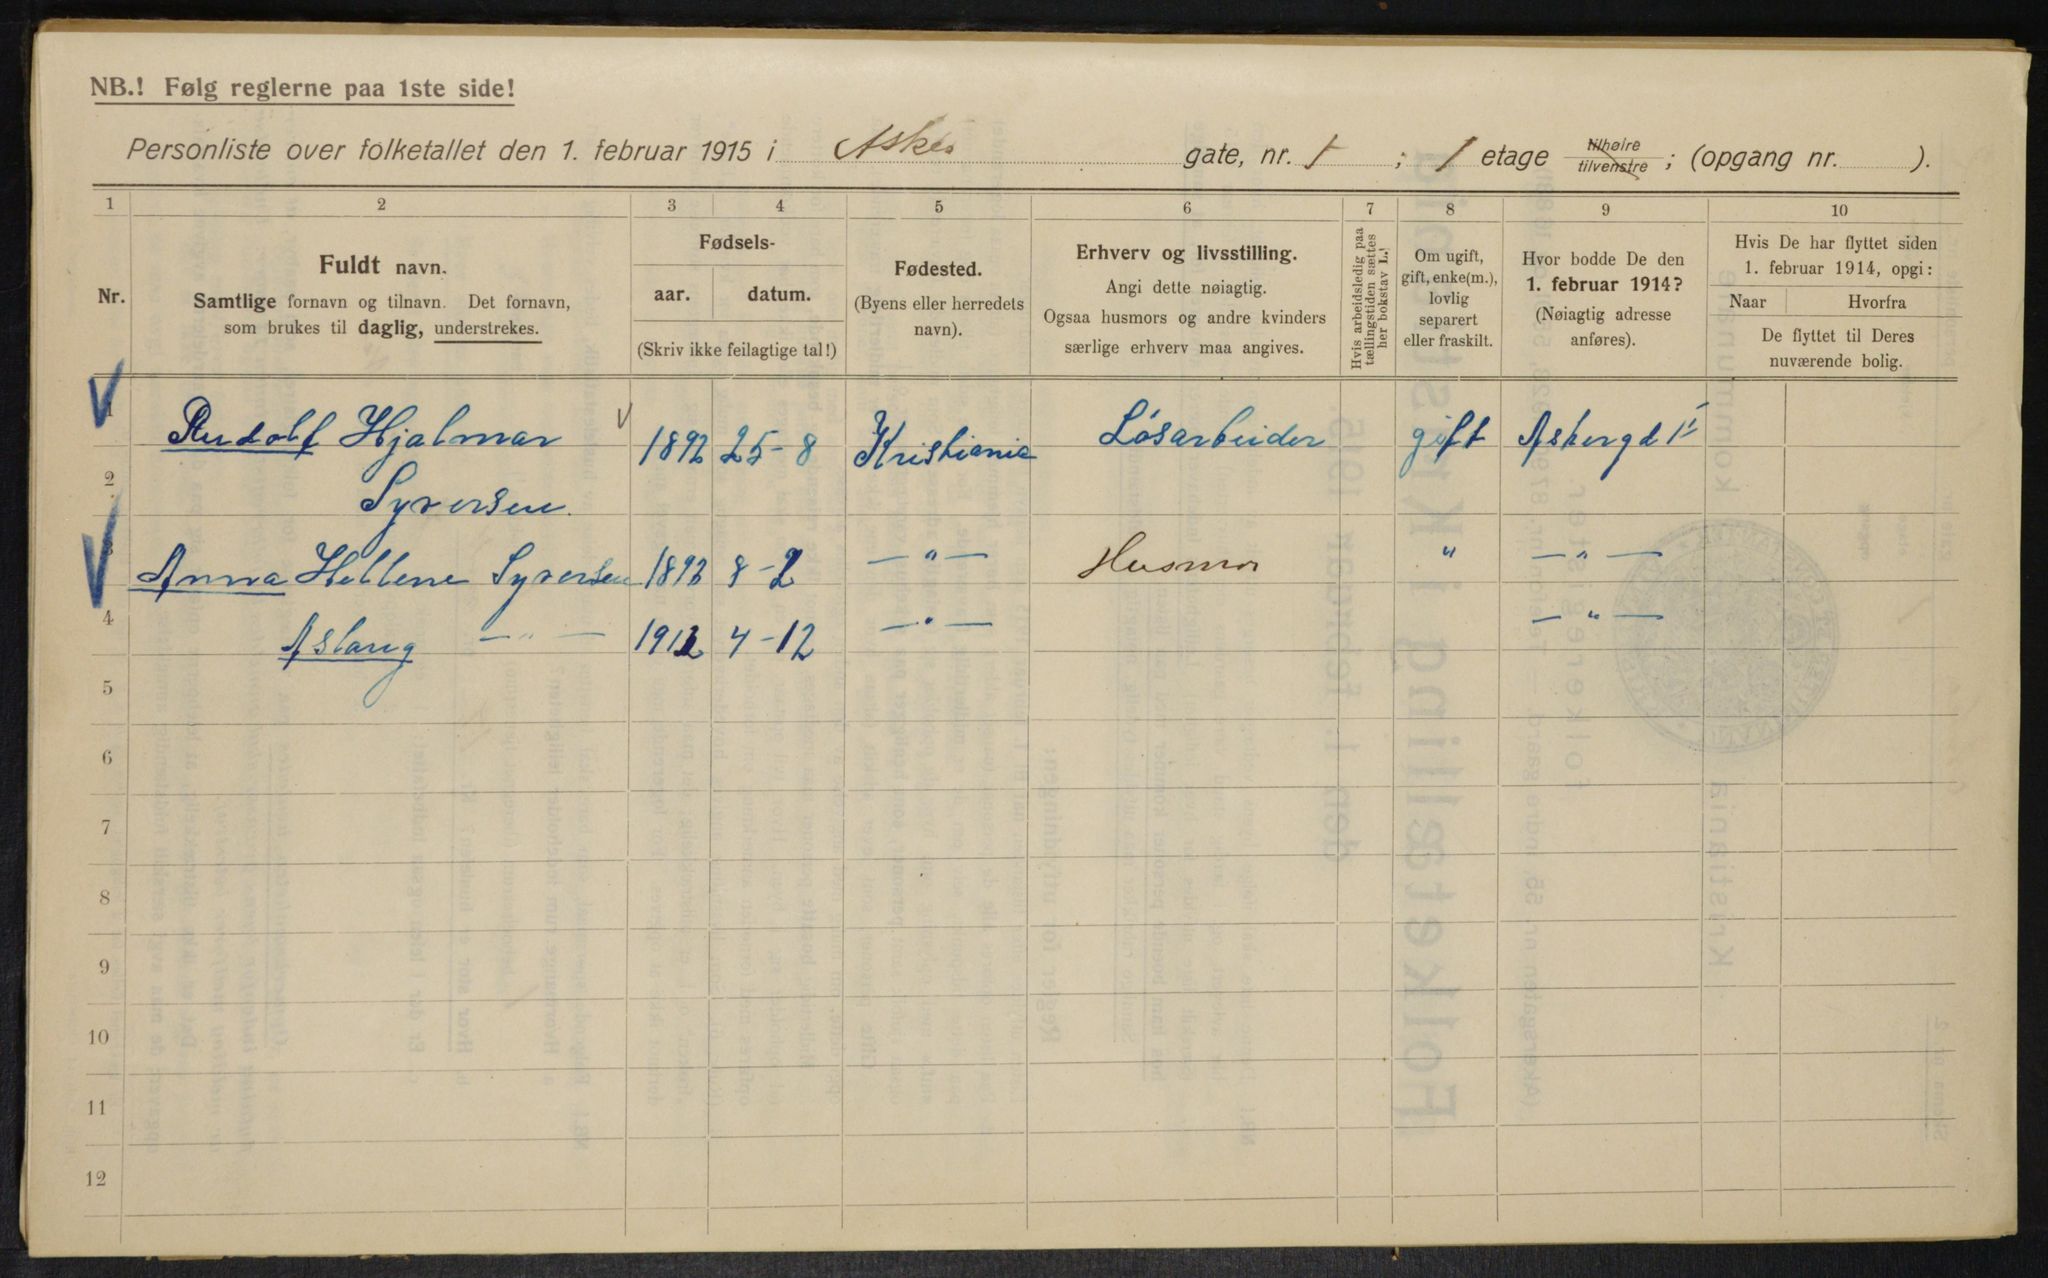 NB.! Følg reglerne paa 1ste side!
Personliste over folketallet den 1. februar 1915 i Asker gate, nr. 1 ; 1 etage tilhøire tilvenstre ; (opgang nr. ).
1 2 3 4 5 6 7 8 9 10
Nr.
Fuldt navn.
Samtlige fornavn og tilnavn. Det fornavn,
som brukes til daglig, understrekes.
Fødsels-
aar. datum.
(Skriv ikke feilagtige tal!)
Fødested.
(Byens eller herredets
navn).
Erhverv og livsstilling.
Angi dette nøiagtig.
Ogsaa husmors og andre kvinders
særlige erhverv maa angives.
Hvis arbeidsledig paa
tællingstiden sættes
her bokstav L.!
Om ugift,
gift, enke(m.),
lovlig
separert
eller fraskilt.
Hvor bodde De den
1. februar 1914?
(Nøiagtig adresse
anføres).
Hvis De har flyttet siden
1. februar 1914, opgi:
Naar Hvorfra
De flyttet til Deres
nuværende bolig.
1 Rudolf Hjalmar 1892 25-8 Kristiania Løsarbeider gift Askergd 1
2 Syversen
3 Anna Hellene Syversen 1892 8-2 — " — Husmor " — " —
4 Aslaug — " — 1912 4-12 — " — — " —
5
6
7
8
9
10
11
12